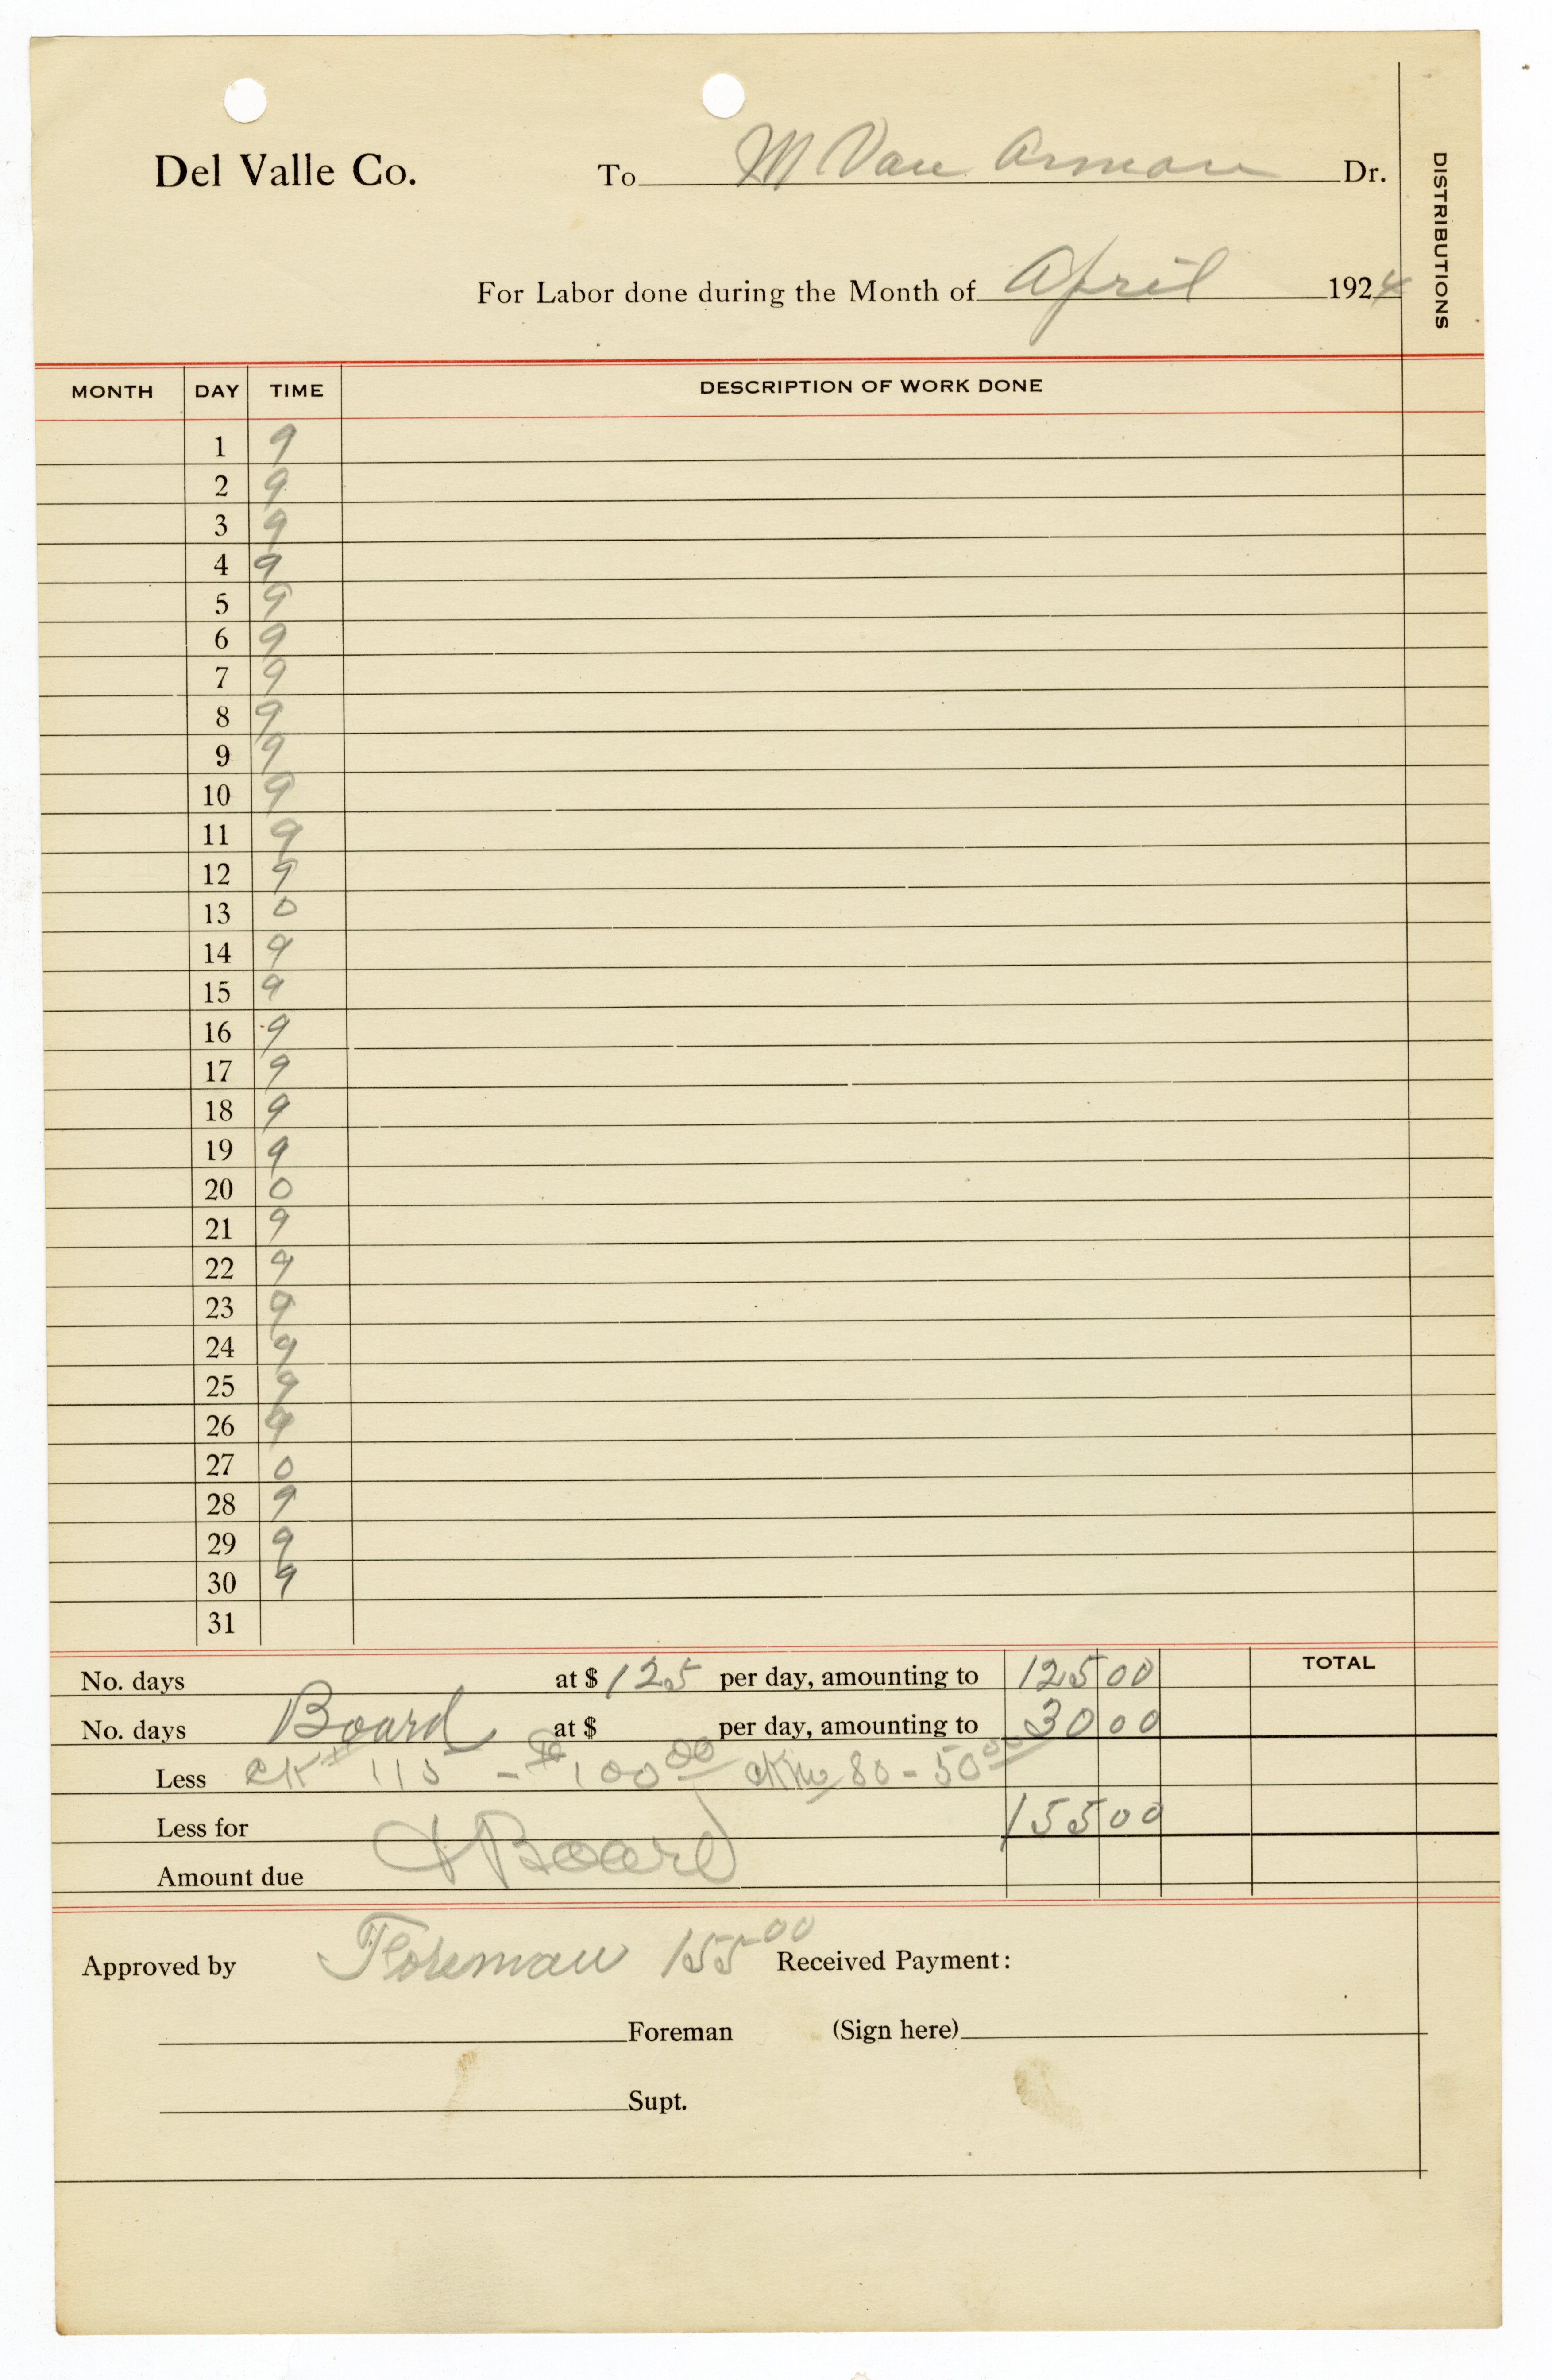 Del Valle Co. To M Van Arman Dr.
DISTRIBUTIONS
For Labor done during the Month of April 1924
MONTH DAY TIME DESCRIPTION OF WORK DONE
1 9
2 9
3 9
4 9
5 9
6 9
7 9
8 9
9 9
10 9
11 9
12 9
13 0
14 9
15 9
16 9
17 9
18 9
19 9
20 0
21 9
22 9
23 9
24 9
25 9
26 9
27 0
28 9
29 9
30 9
31
No. days at $ 125 per day, amounting to 125 00 TOTAL
No. days Board at $ per day, amounting to 30 00
Less CK# 115 - $100 00 CK No 80 - 50 00
Less for 155 00
Amount due & Board
Approved by Foreman 155 00 Received Payment:
Foreman (Sign here)
Supt.